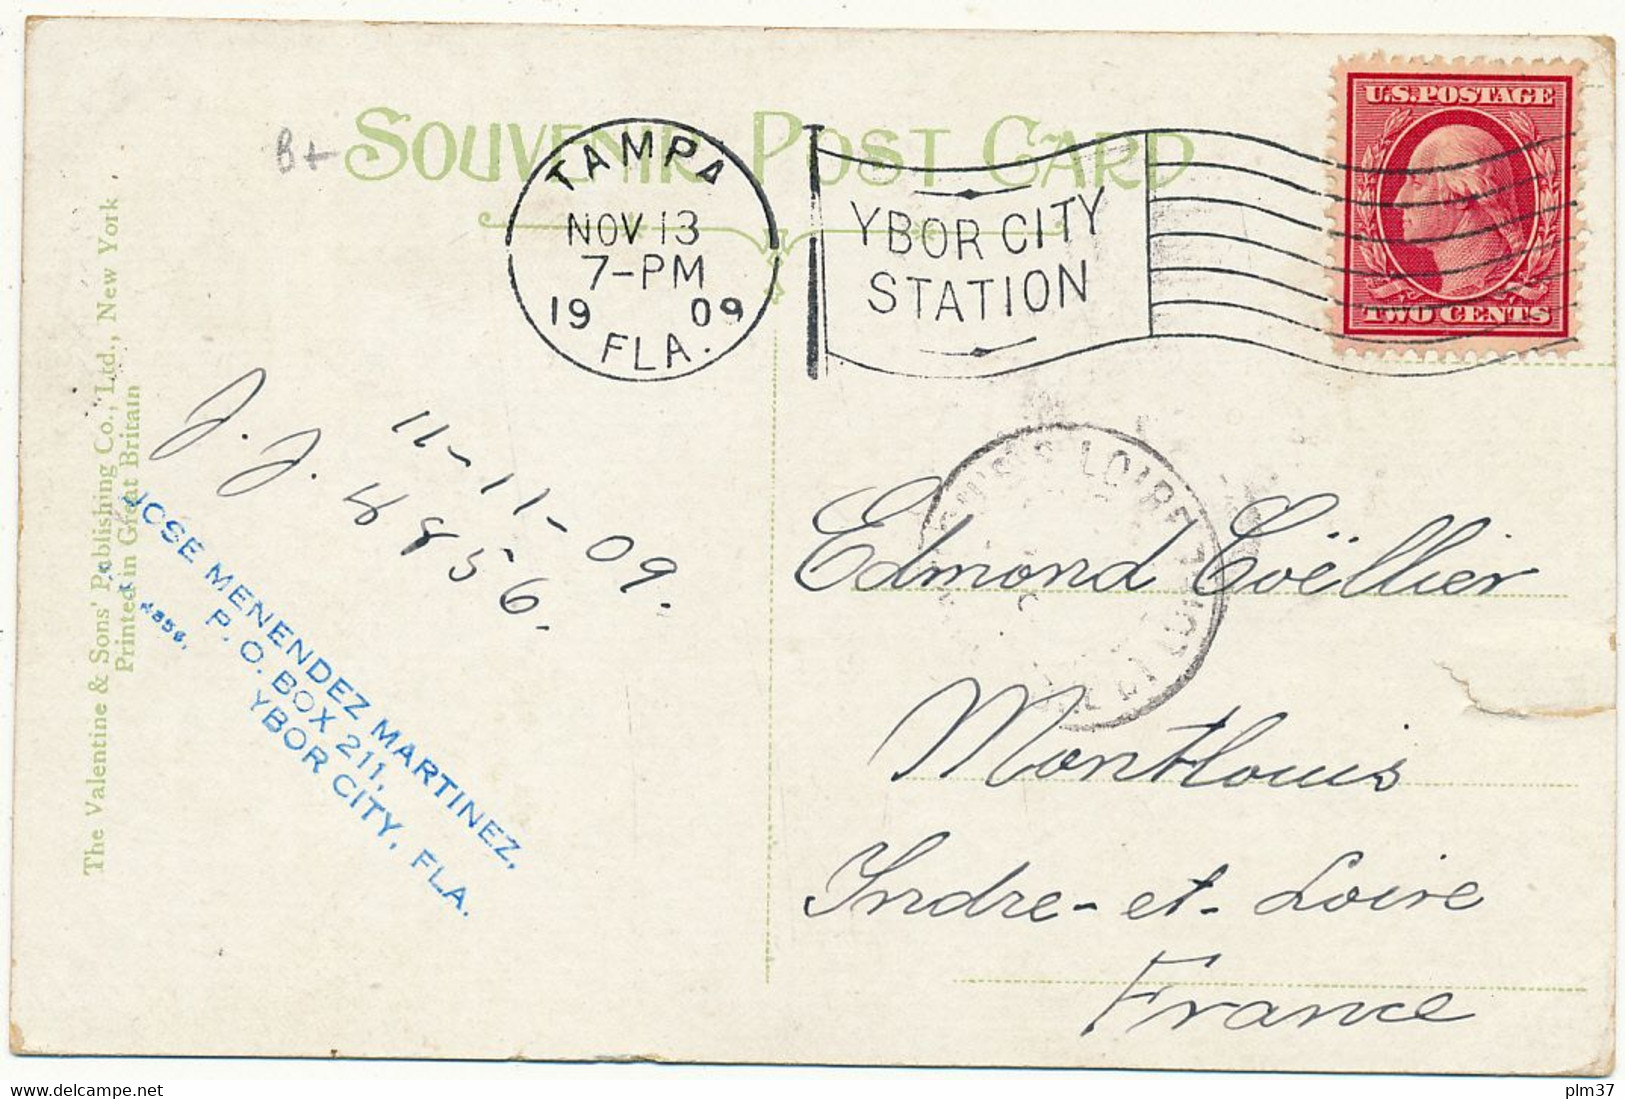 B+
SOUVENIR POST CARD
TAMPA
NOV 13
7-PM
1909
FLA.
YBOR CITY
STATION
U.S. POSTAGE
TWO CENTS
The Valentine & Sons' Publishing Co., Ltd., New York
Printed in Great Britain
11-11-09.
J. J. 4856.
JOSE MENENDEZ MARTINEZ,
P. O. BOX 211,
YBOR CITY, FLA.
4856.
LOIRE
Edmond Coëllier
Montlouis
Indre-et-Loire
France
delcampe.net
plm37